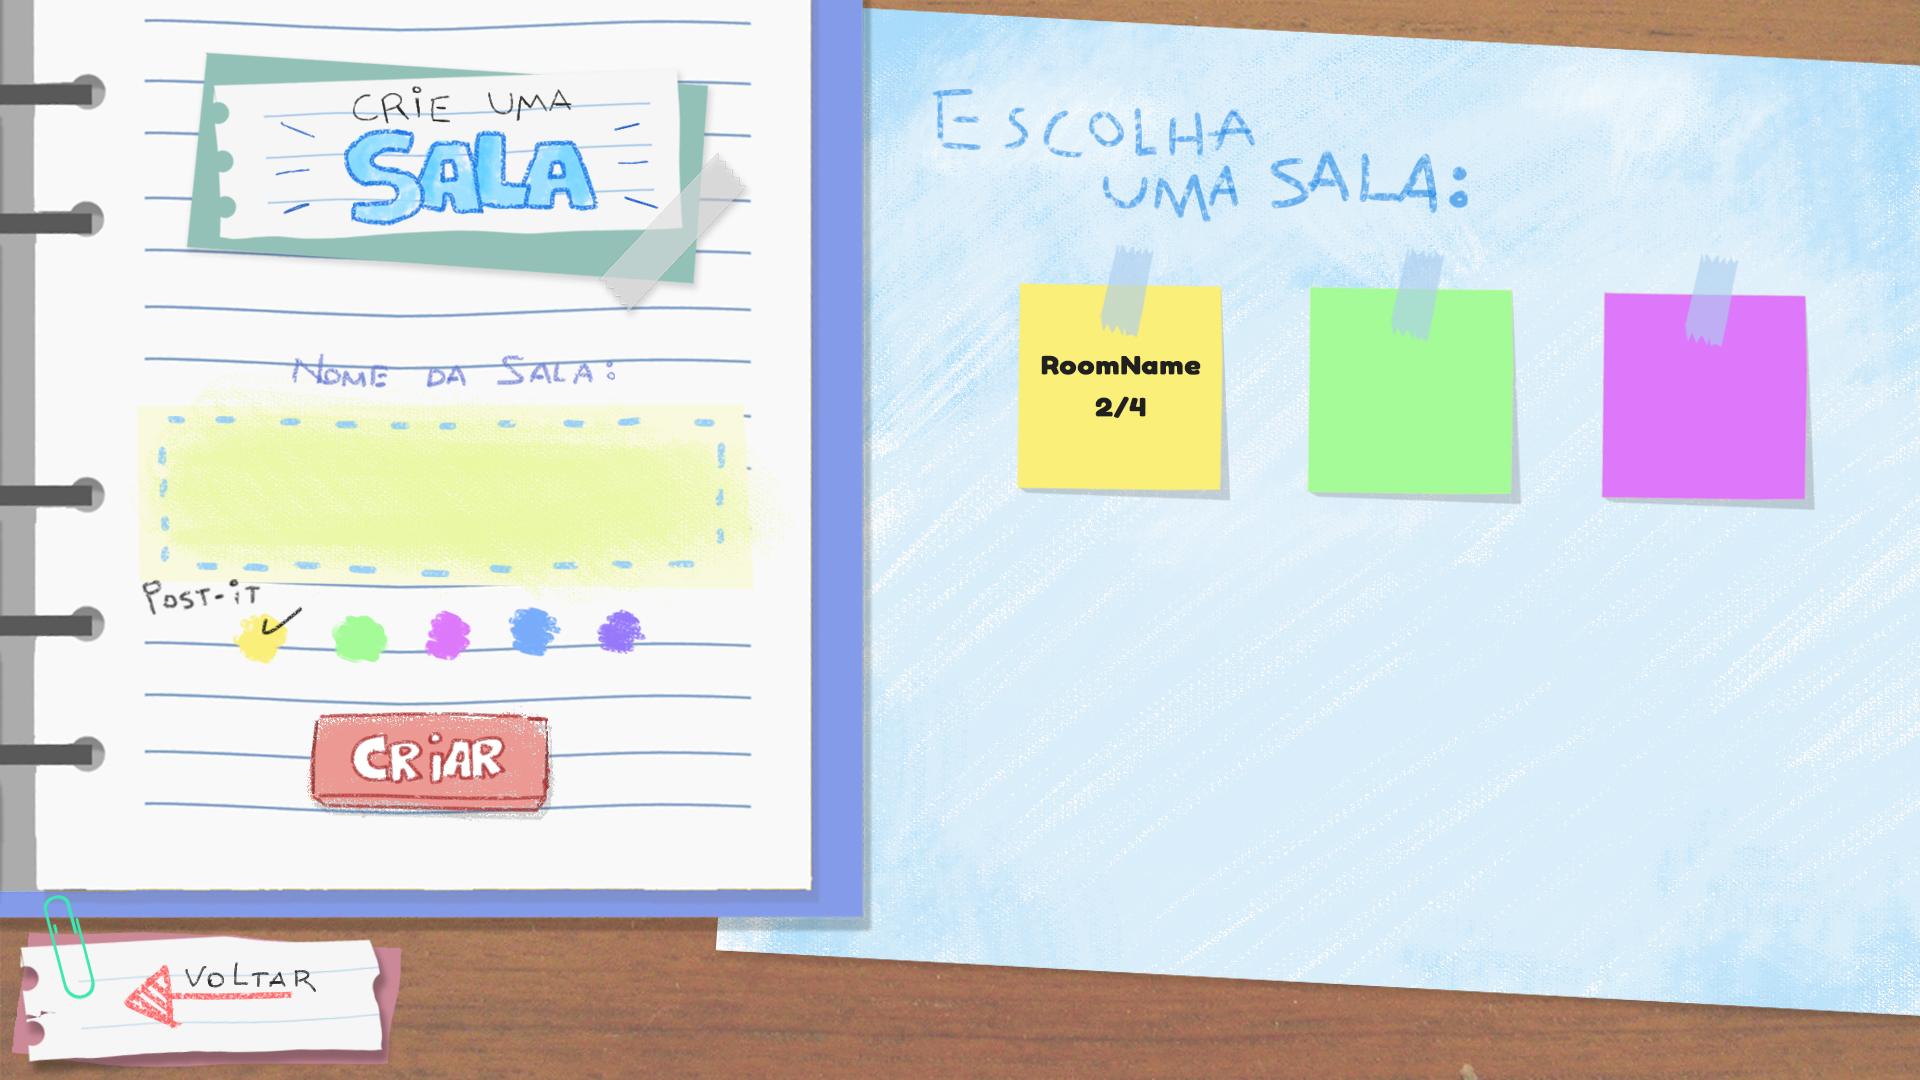 CRIE UMA
SALA
NOME DA SALA:
POST-iT
CRiAR
VOLTAR
ESCOLHA
UMA SALA:
RoomName
2/4